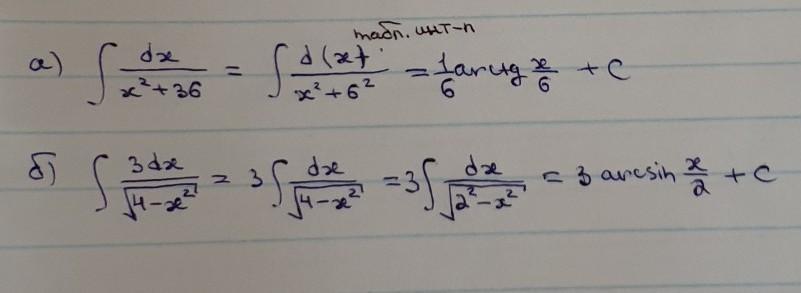 табл. инт-л
а) ∫ dx/(x²+36) = ∫ d(x)/(x²+6²) = 1/6 arctg x/6 + C
б) ∫ 3dx/√(4-x²) = 3∫ dx/√(4-x²) = 3∫ dx/√(2²-x²) = 3 arcsin x/2 + C